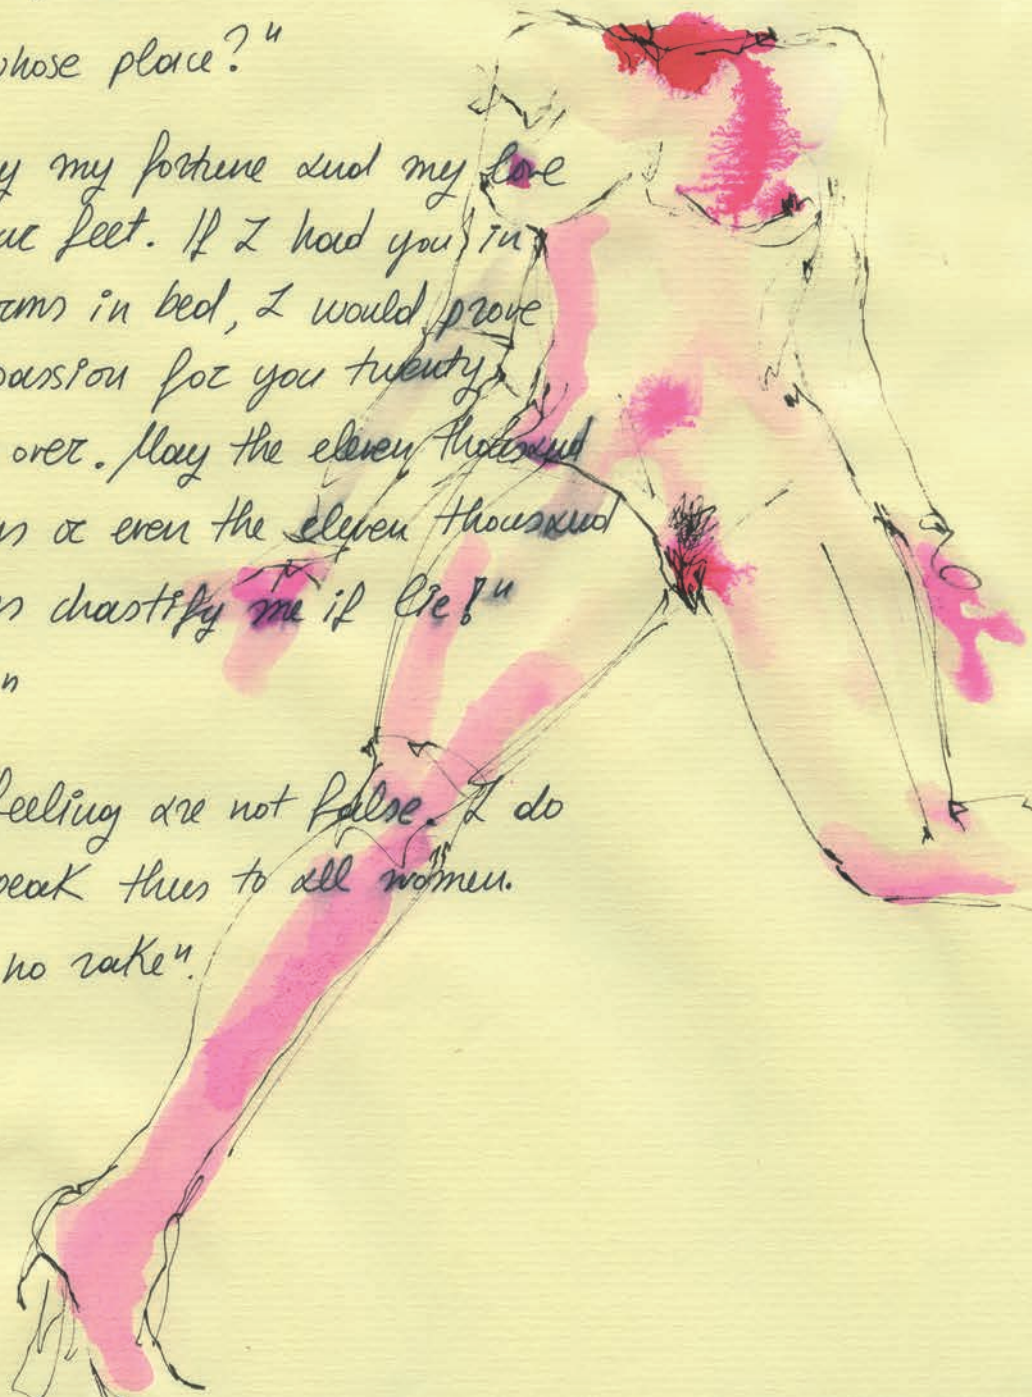 whose place?"
y my fortune and my love
ur feet. If I had you in
rms in bed, I would prove
passion for you twenty
over. May the eleven thousand
ns or even the eleven thousand
s chastify me if lie!"
"
feeling are not false. I do
peak thus to all women.
no rake".